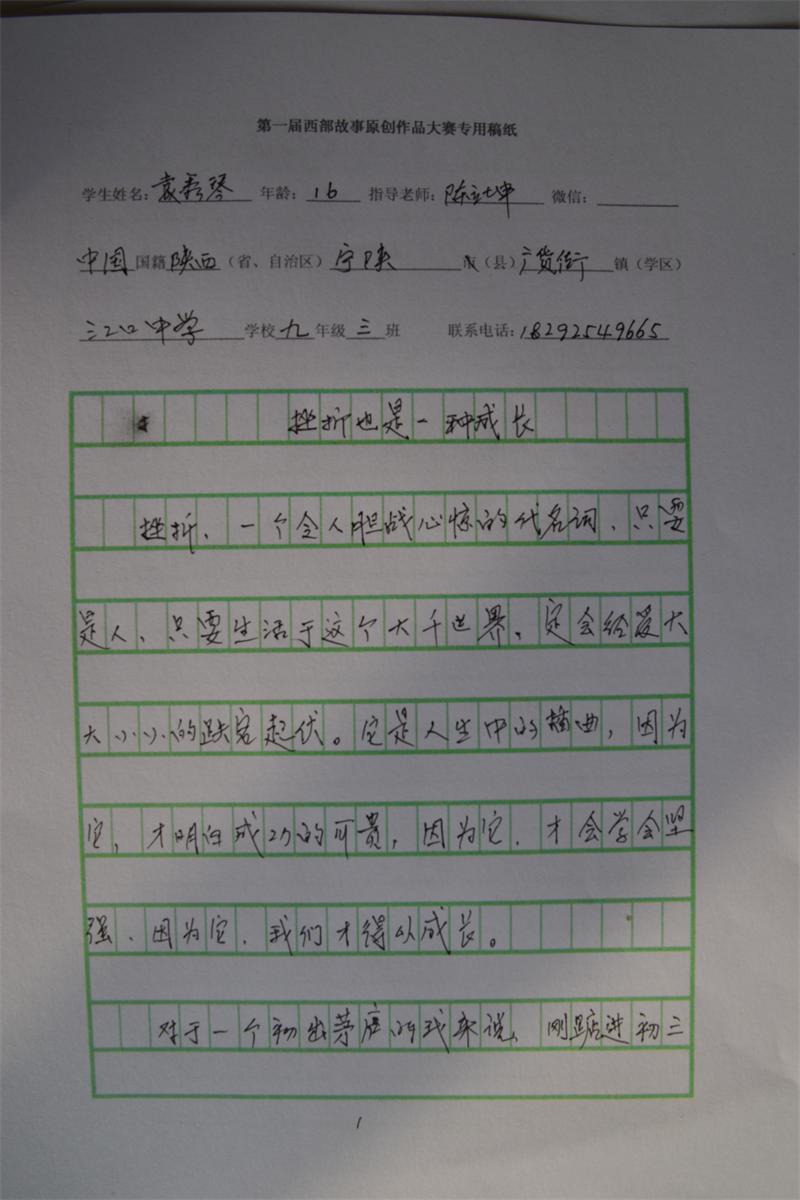 第一届西部故事原创作品大赛专用稿纸
学生姓名：袁秀琴 年龄：16 指导老师：陈 坤 微信：
中国国籍陕西（省、自治区）宁陕市（县）广货街镇（学区）
江口中学学校九年级三班 联系电话：18292549665
挫折也是一种成长
挫折、一个令人胆战心惊的代名词、只要
是人、只要生活于这个大千世界、定会经受大
大小小的跌宕起伏。它是人生中的插曲，因为
它，才明白成功的可贵，因为它、才会学会坚
强、因为它、我们才得以成长。
对于一个初出茅庐的我来说、刚踏进初三
1